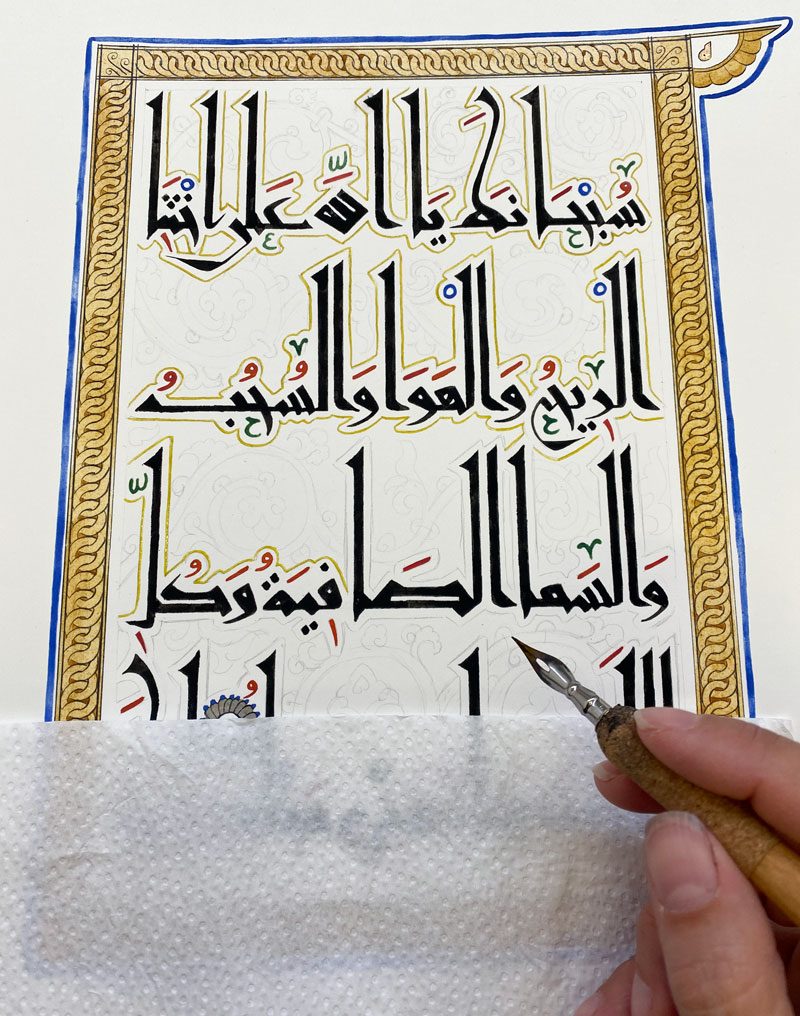 سُبْحَانَكَ يَا اللَّه عَلَى اِنْشَا
الْرِيحُ وَالْهَوَا وَالسُحُبُ
وَالسَمَا الصَافِيَةُ وَكُلِّ